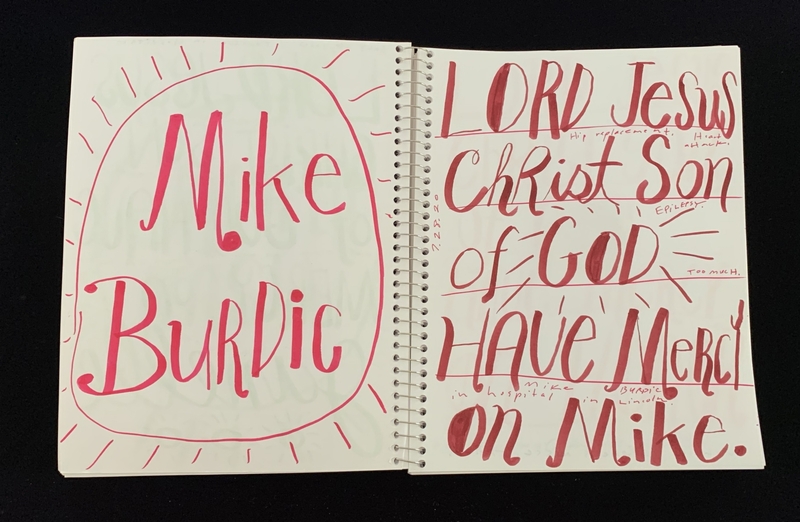 Mike
BURDIC
LORD Jesus
Hip replacement. Heart
attacks.
ChRist Son
EPILEPSY.
of GOD
TOO MUCH.
HAVE MeRCY
Mike BURDIC
in hospital in Lincoln.
on Mike.